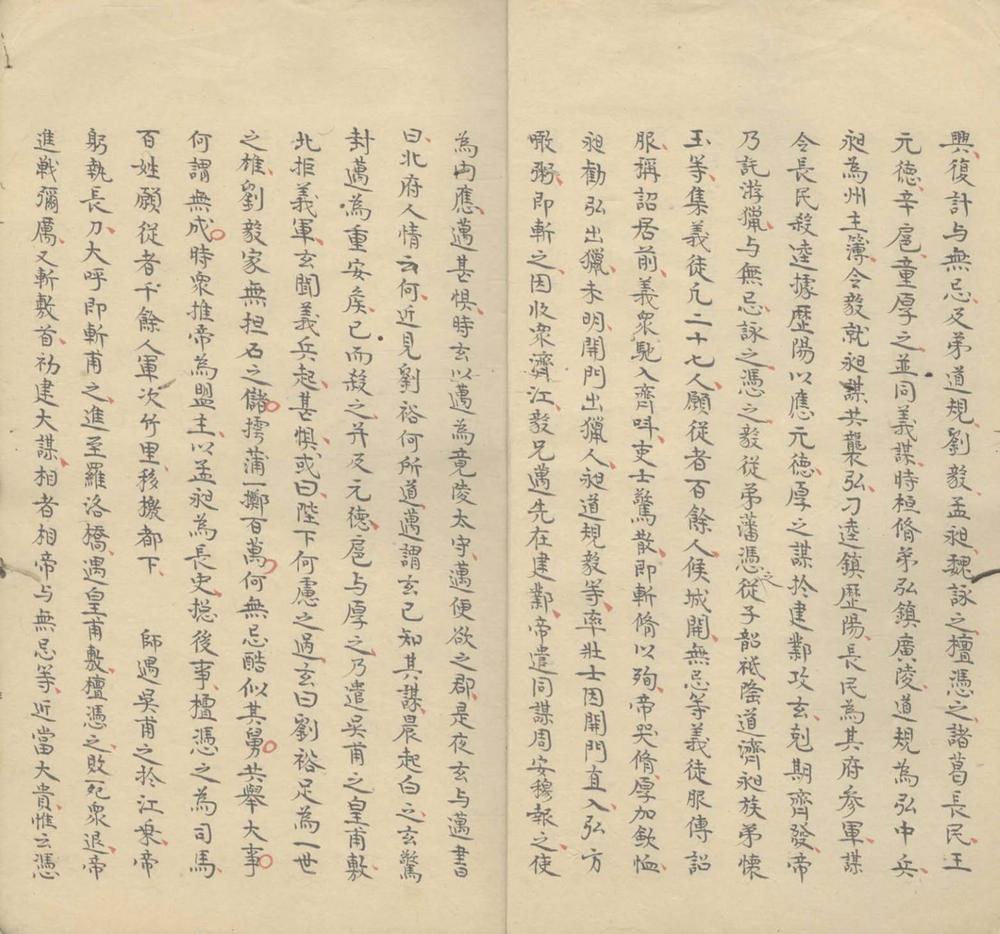 興復計与無忌及弟道規劉毅孟昶魏詠之檀憑之諸葛長民王
元德辛扈童厚之並同義謀時桓脩弟弘鎮廣陵道規為弘中兵
昶為州主簿令毅就昶謀共襲弘刁逵鎮歷陽長民為其府参軍謀
令長民殺逵據歷陽以應元德厚之謀於建鄴攻玄剋期齊發帝
乃託游獵与無忌詠之憑之毅從弟藩憑之從子韶祗隆道濟昶族弟懷
玉等集義徒凢二十七人願從者百餘人候城開無忌等義徒服傳詔
服稱詔居前義衆馳入齊呌吏士驚散即斬脩以殉帝哭脩厚加歛恤
昶勸弘出獵未明開門出獵人昶道規毅等率壯士因開門直入弘方
噉粥即斬之因收衆濟江毅兄邁先在建鄴帝遣同謀周安穆報之使
為内應邁甚懼時玄以邁為竟陵太守邁便欲之郡是夜玄与邁書
曰北府人情云何近見劉裕何所道邁謂玄已知其謀晨起白之玄驚
封邁為重安矦已而殺之并及元德扈与厚之乃遣吴甫之皇甫敷
北拒義軍玄聞義兵起甚懼或曰陛下何慮之過玄曰劉裕足為一世
之雄劉毅家無担石之儲摴蒲一擲百萬何無忌酷似其舅共舉大事
何謂無成時衆推帝為盟主以孟昶為長史捴後事檀憑之為司馬
百姓願從者千餘人軍次竹里移檄都下　師遇吴甫之於江乘帝
躬執長刀大呼即斬甫之進至羅洛橋遇皇甫敷檀憑之敗死衆退帝
進戰彌厲又斬敷首初建大謀相者相帝与無忌等近當大貴惟云憑